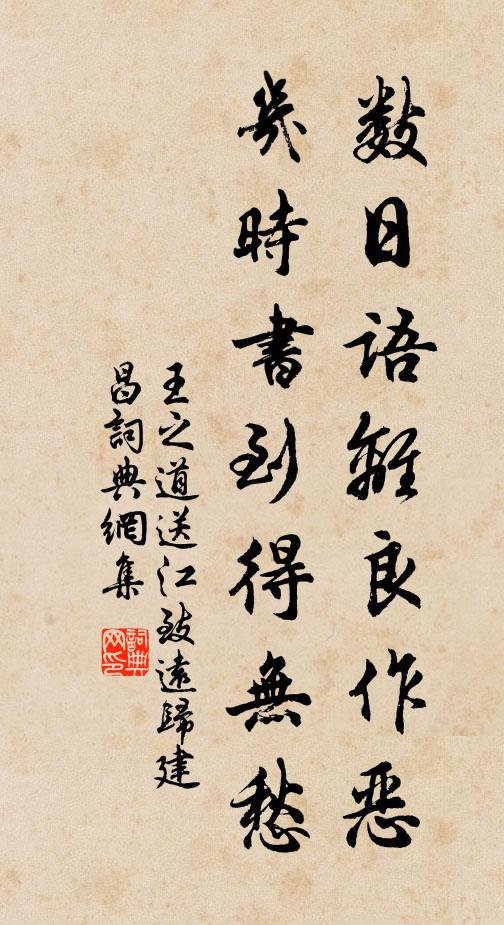 數日語離良作惡
幾時書到得無愁
王之道送江致遠歸建
昌詞典網集
詞典網印